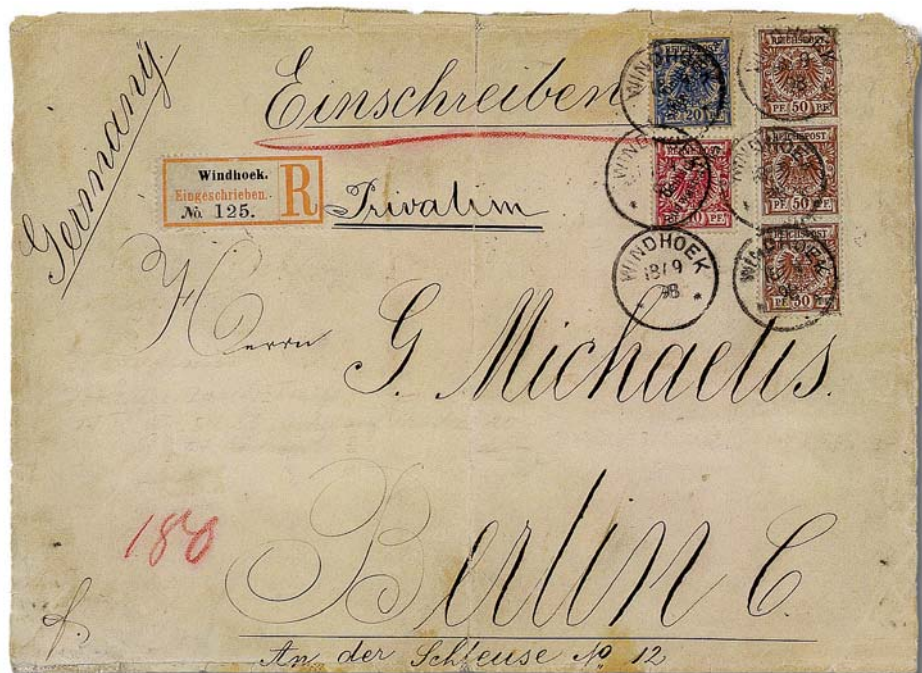 Germany.
Einschreiben
Windhoek.
Eingeschrieben.
No. 125.
R
Privatim
REICHSPOST
PF 20 PF.
REICHSPOST
PF 50 PF.
REICHSPOST
PF. 10 PF.
REICHSPOST
PF 50 PF.
REICHSPOST
PF 50 PF.
WINDHOEK
WINDHOEK
WINDHOEK
WINDHOEK
WINDHOEK
18/9
98
WINDHOEK
98
Herrn
G. Michaelis.
180
Berlin C.
An der Schleuse No 12